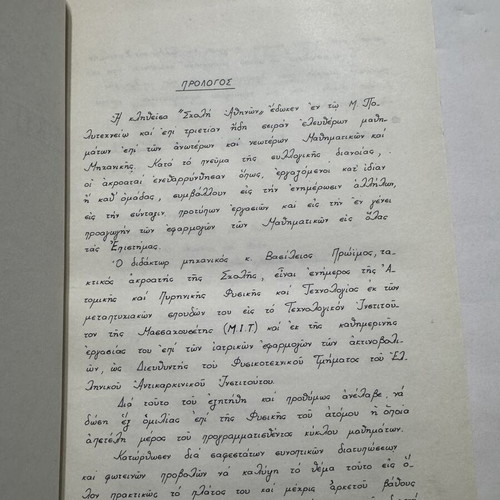 ΠΡΟΛΟΓΟΣ
Ἡ κληθεῖσα "Σχολή Ἀθηνῶν" ἔδωκεν ἐν τῷ Μ. Πο-
λυτεχνείῳ καί ἐπί τριετίαν ἤδη σειράν ἐλευθέρων μαθη-
μάτων ἐπί τῶν ἀνωτέρων καί νεωτέρων Μαθηματικῶν καί
Μηχανικῆς. Κατά τό πνεῦμα τῆς συλλογικῆς διανοίας,
οἱ ἀκροαταί ἐνεθαρρύνθησαν ὅπως, ἐργαζόμενοι κατ' ἰδίαν
ἤ καθ' ὁμάδας, συμβάλλουν εἰς τήν ἐνημέρωσιν ἀλλήλων,
εἰς τήν σύνταξιν προτύπων ἐργασιῶν καί εἰς τήν ἐν γένει
προαγωγήν τῶν ἐφαρμογῶν τῶν Μαθηματικῶν εἰς ὅλας
τάς Ἐπιστήμας.
Ὁ διδάκτωρ μηχανικός κ. Βασίλειος Πρώιμος, τα-
κτικός ἀκροατής τῆς Σχολῆς, εἶναι ἐνήμερος τῆς Ἀ-
τομικῆς καί Πυρηνικῆς Φυσικῆς καί Τεχνολογίας ἐκ τῶν
μεταπτυχιακῶν σπουδῶν του εἰς τό Τεχνολογικόν Ἰνστιτοῦ-
τον τῆς Μασσαχουσέτης (M.I.T) καί ἐκ τῆς καθημερινῆς
ἐργασίας του ἐπί τῶν ἰατρικῶν ἐφαρμογῶν τῶν ἀκτινοβολι-
ῶν, ὡς Διευθυντής τοῦ Φυσικοτεχνικοῦ Τμήματος τοῦ Ἑλ-
ληνικοῦ Ἀντικαρκινικοῦ Ἰνστιτούτου.
Διά τοῦτο τοῦ ἐζητήθη καί προθύμως ἀνέλαβε νά
δώσῃ ἕξ ὁμιλίας ἐπί τῆς Φυσικῆς τοῦ ἀτόμου ἡ ὁποία
ἀπετέλει μέρος τοῦ προγραμματισθέντος κύκλου μαθημάτων.
Κατώρθωσεν διά σαφεστάτων συνοπτικῶν διατυπώσεων
καί φωτεινῶν προβολῶν νά καλύψῃ τό θέμα τοῦτο εἰς ὅ-
λον πρακτικῶς τό πλάτος του καί μέχρις ἀρκετοῦ βάθους